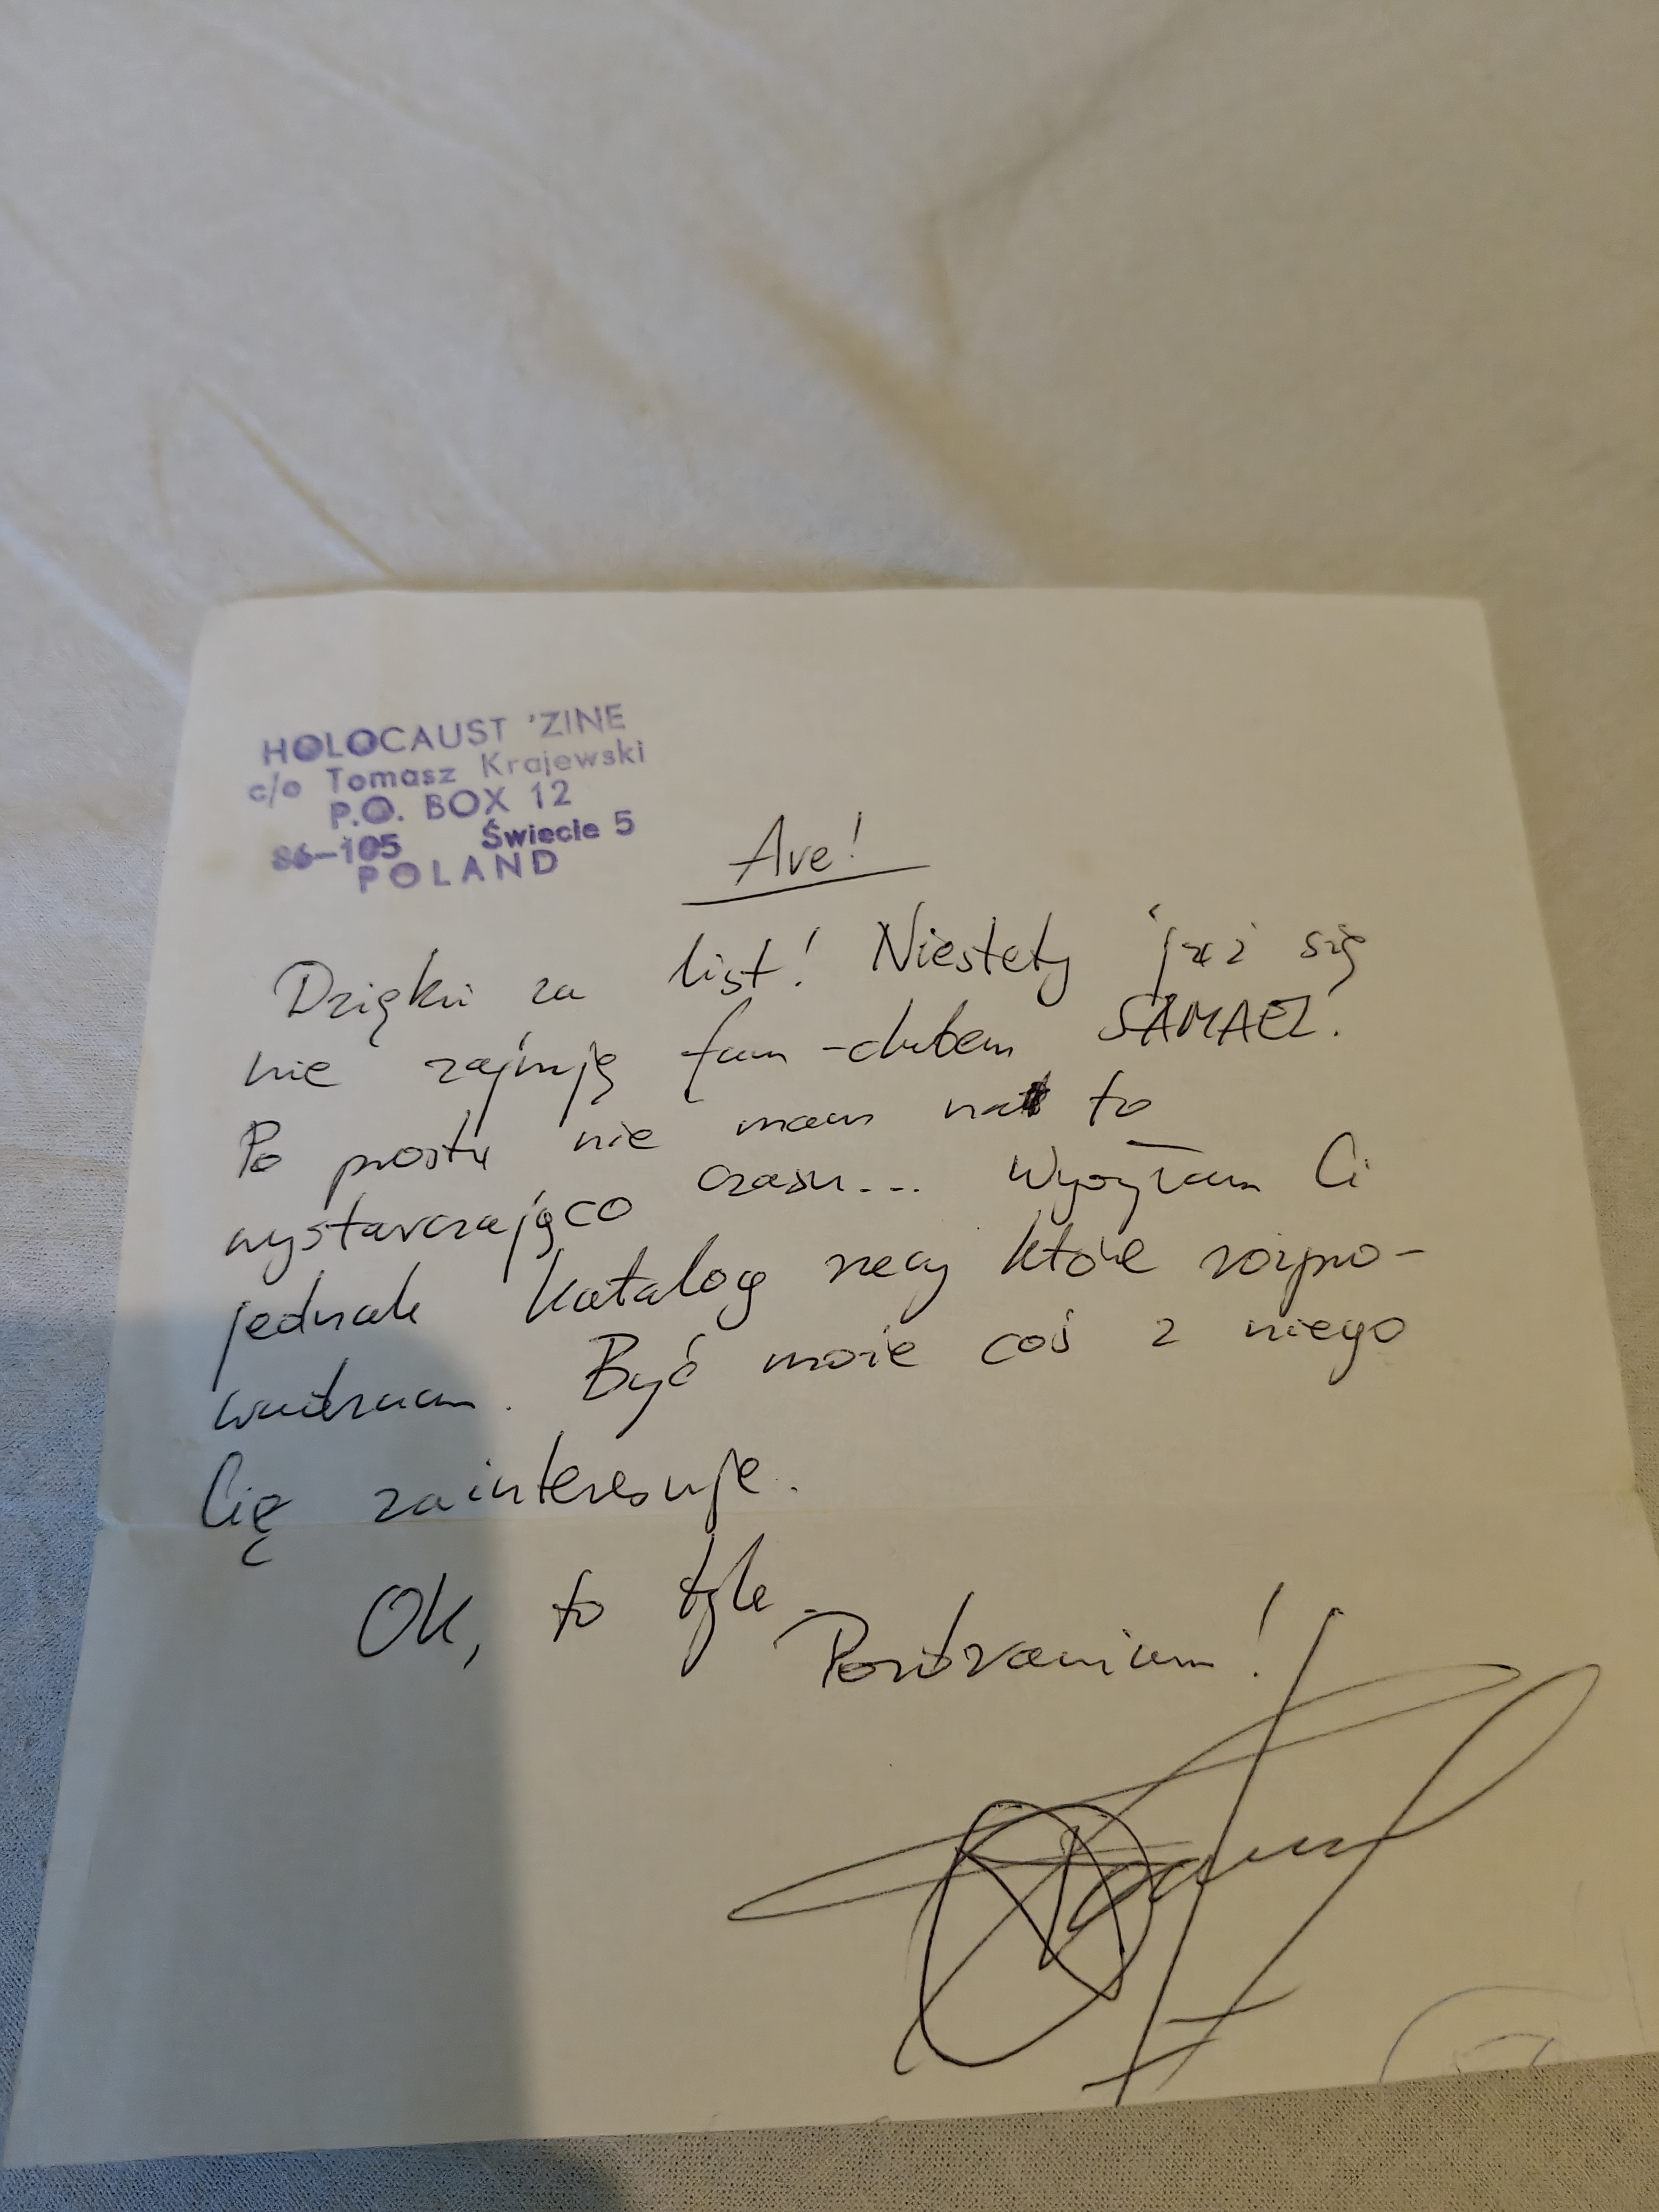 HOLOCAUST 'ZINE
c/o Tomasz Krajewski
P.O. BOX 12
86-105 Świecie 5
POLAND
Ave!
Dzięki za list! Niestety już się
nie zajmuję fan-clubem SAMAEL.
Po prostu nie mam na to
wystarczająco czasu... Wysyłam Ci
jednak katalog rzeczy które rozpro-
wadzam. Być może coś z niego
Cię zainteresuje.
OK, to tyle.
Pozdrawiam!